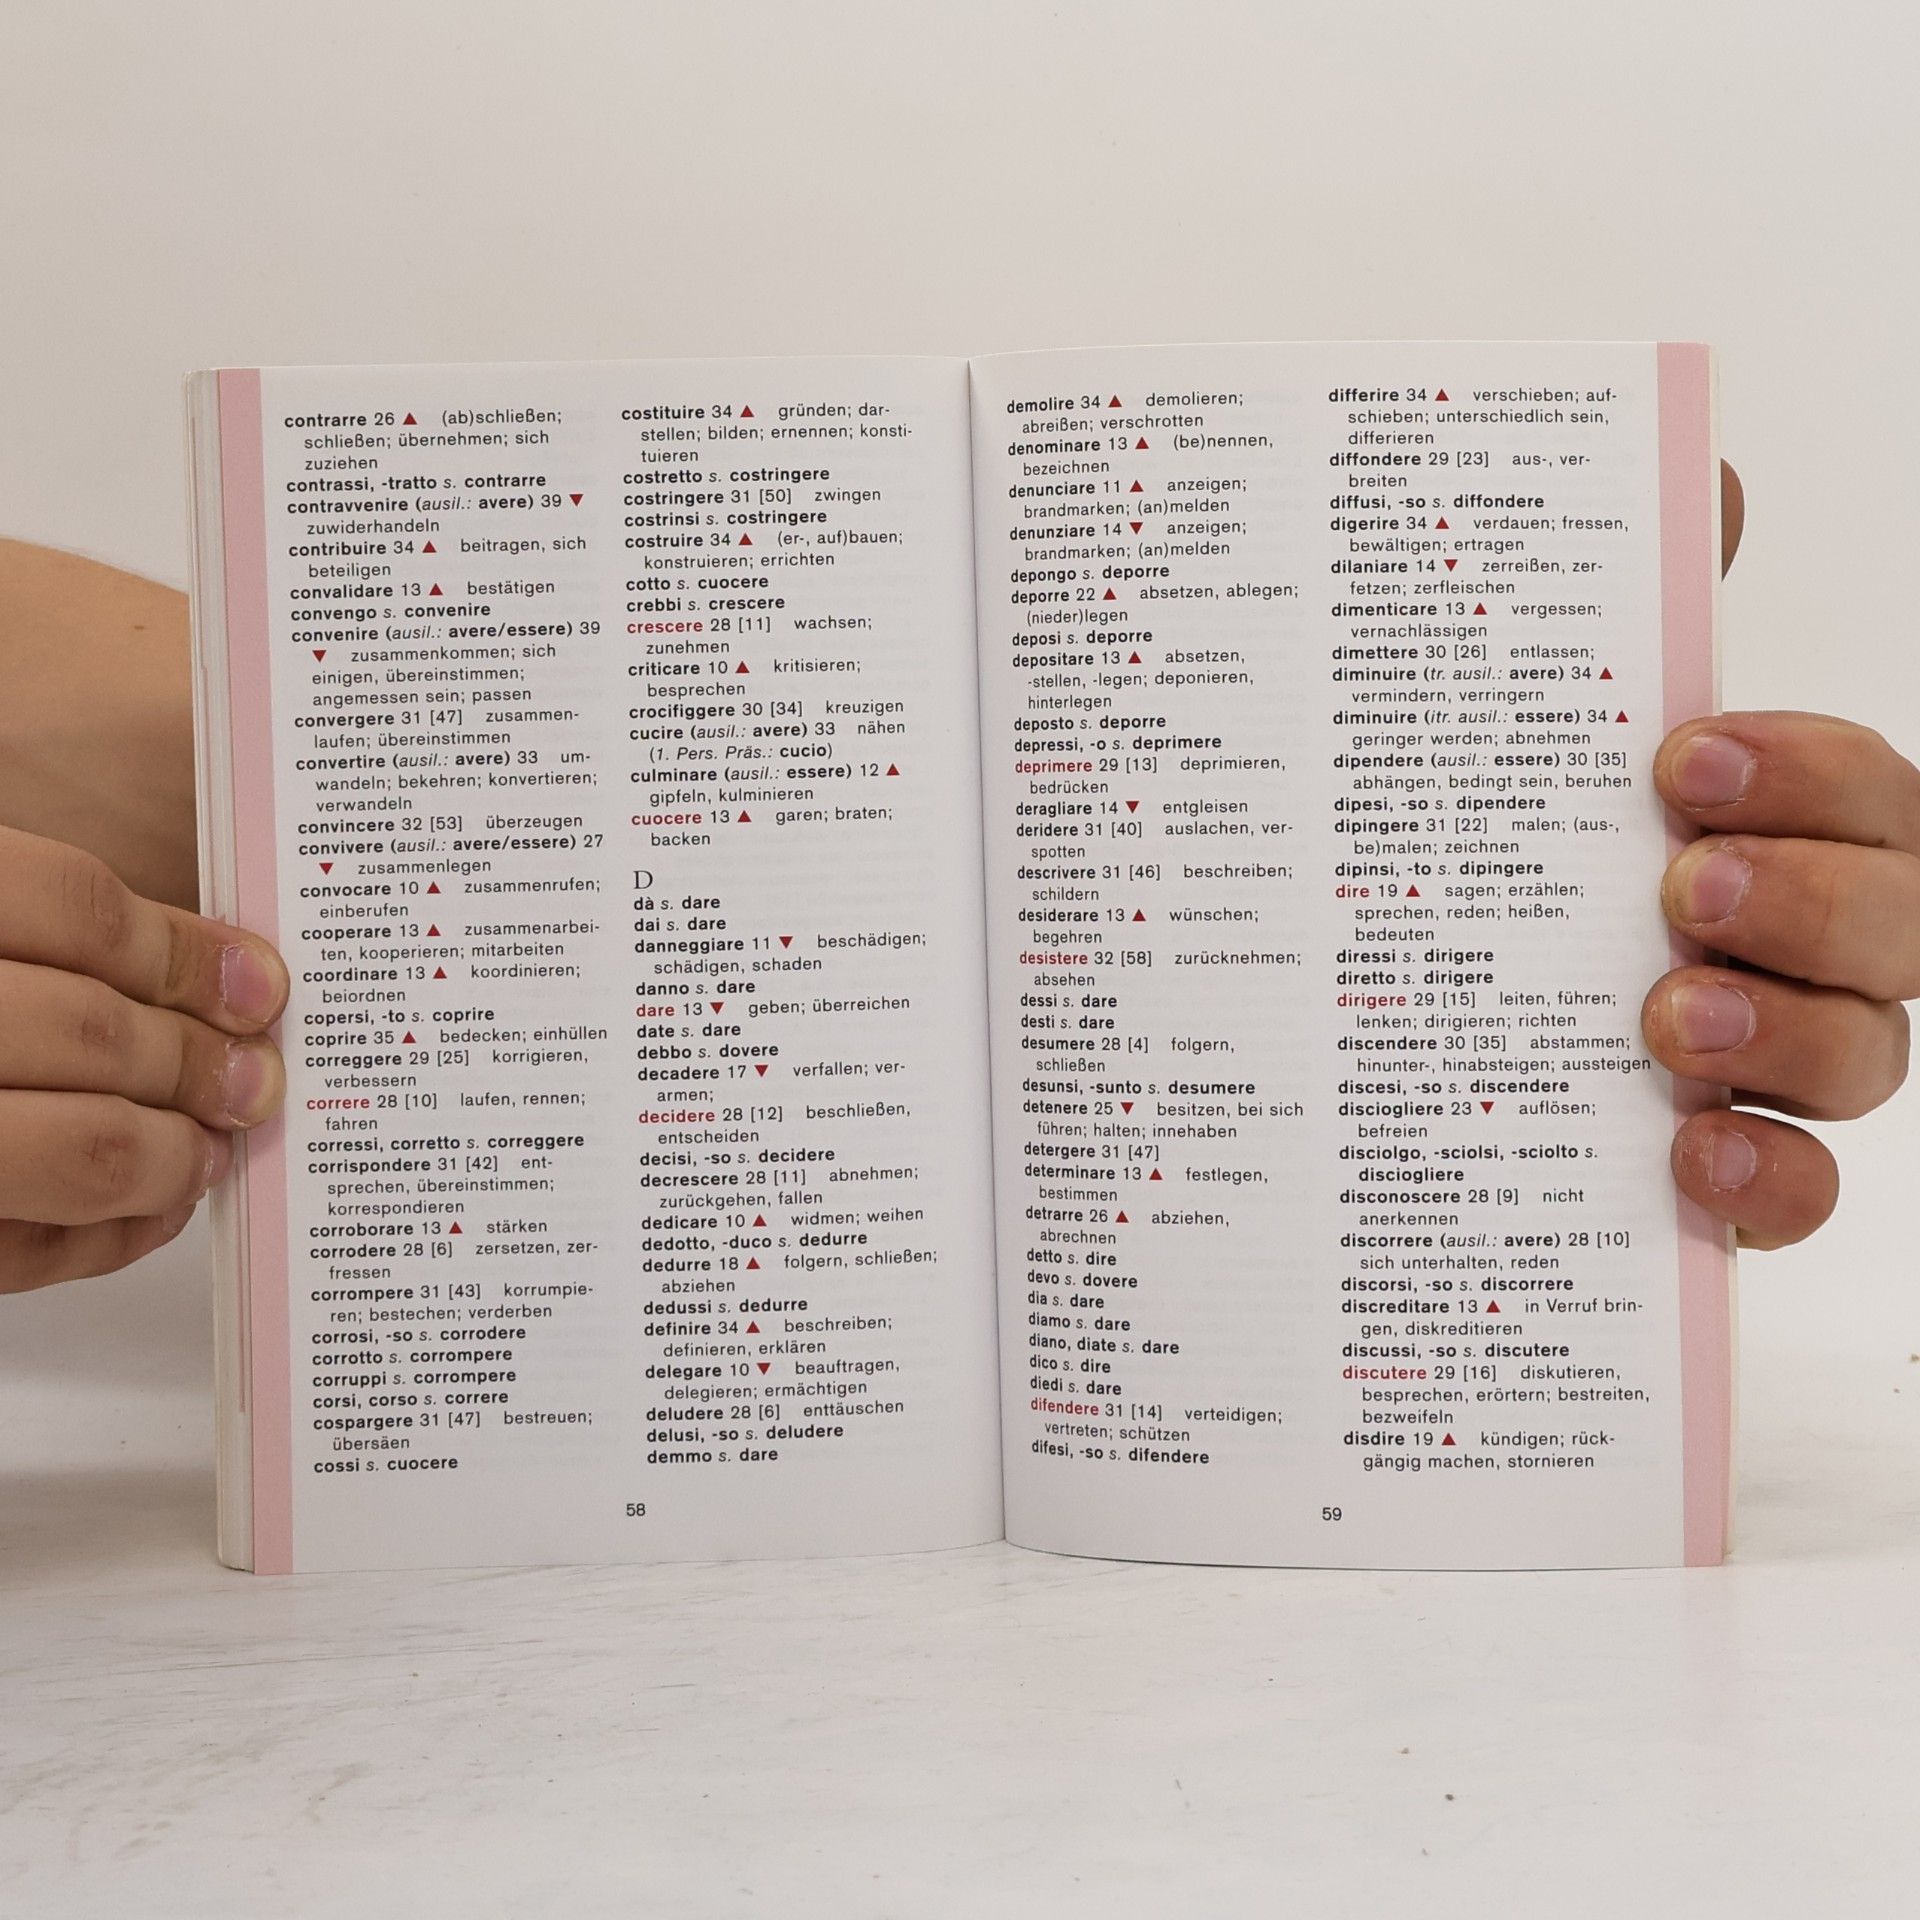 contrarre 26 ▲ (ab)schließen;
schließen; übernehmen; sich
zuziehen
contrassi, -tratto s. contrarre
contravvenire (ausil.: avere) 39 ▼
zuwiderhandeln
contribuire 34 ▲ beitragen, sich
beteiligen
convalidare 13 ▲ bestätigen
convengo s. convenire
convenire (ausil.: avere/essere) 39
▼ zusammenkommen; sich
einigen, übereinstimmen;
angemessen sein; passen
convergere 31 [47] zusammen-
laufen; übereinstimmen
convertire (ausil.: avere) 33 um-
wandeln; bekehren; konvertieren;
verwandeln
convincere 32 [53] überzeugen
convivere (ausil.: avere/essere) 27
▼ zusammenlegen
convocare 10 ▲ zusammenrufen;
einberufen
cooperare 13 ▲ zusammenarbei-
ten, kooperieren; mitarbeiten
coordinare 13 ▲ koordinieren;
beiordnen
copersi, -to s. coprire
coprire 35 ▲ bedecken; einhüllen
correggere 29 [25] korrigieren,
verbessern
correre 28 [10] laufen, rennen;
fahren
corressi, corretto s. correggere
corrispondere 31 [42] ent-
sprechen, übereinstimmen;
korrespondieren
corroborare 13 ▲ stärken
corrodere 28 [6] zersetzen, zer-
fressen
corrompere 31 [43] korrumpie-
ren; bestechen; verderben
corrosi, -so s. corrodere
corrotto s. corrompere
corruppi s. corrompere
corsi, corso s. correre
cospargere 31 [47] bestreuen;
übersäen
cossi s. cuocere
costituire 34 ▲ gründen; dar-
stellen; bilden; ernennen; konsti-
tuieren
costretto s. costringere
costringere 31 [50] zwingen
costrinsi s. costringere
costruire 34 ▲ (er-, auf)bauen;
konstruieren; errichten
cotto s. cuocere
crebbi s. crescere
crescere 28 [11] wachsen;
zunehmen
criticare 10 ▲ kritisieren;
besprechen
crocifiggere 30 [34] kreuzigen
cucire (ausil.: avere) 33 nähen
(1. Pers. Präs.: cucio)
culminare (ausil.: essere) 12 ▲
gipfeln, kulminieren
cuocere 13 ▲ garen; braten;
backen
D
dà s. dare
dai s. dare
danneggiare 11 ▼ beschädigen;
schädigen, schaden
danno s. dare
dare 13 ▼ geben; überreichen
date s. dare
debbo s. dovere
decadere 17 ▼ verfallen; ver-
armen;
decidere 28 [12] beschließen,
entscheiden
decisi, -so s. decidere
decrescere 28 [11] abnehmen;
zurückgehen, fallen
dedicare 10 ▲ widmen; weihen
dedotto, -duco s. dedurre
dedurre 18 ▲ folgern, schließen;
abziehen
dedussi s. dedurre
definire 34 ▲ beschreiben;
definieren, erklären
delegare 10 ▼ beauftragen,
delegieren; ermächtigen
deludere 28 [6] enttäuschen
delusi, -so s. deludere
demmo s. dare
58
demolire 34 ▲ demolieren;
abreißen; verschrotten
denominare 13 ▲ (be)nennen,
bezeichnen
denunciare 11 ▲ anzeigen;
brandmarken; (an)melden
denunziare 14 ▼ anzeigen;
brandmarken; (an)melden
depongo s. deporre
deporre 22 ▲ absetzen, ablegen;
(nieder)legen
deposi s. deporre
depositare 13 ▲ absetzen,
-stellen, -legen; deponieren,
hinterlegen
deposto s. deporre
depressi, -o s. deprimere
deprimere 29 [13] deprimieren,
bedrücken
deragliare 14 ▼ entgleisen
deridere 31 [40] auslachen, ver-
spotten
descrivere 31 [46] beschreiben;
schildern
desiderare 13 ▲ wünschen;
begehren
desistere 32 [58] zurücknehmen;
absehen
dessi s. dare
desti s. dare
desumere 28 [4] folgern,
schließen
desunsi, -sunto s. desumere
detenere 25 ▼ besitzen, bei sich
führen; halten; innehaben
detergere 31 [47]
determinare 13 ▲ festlegen,
bestimmen
detrarre 26 ▲ abziehen,
abrechnen
detto s. dire
devo s. dovere
dia s. dare
diamo s. dare
diano, diate s. dare
dico s. dire
diedi s. dare
difendere 31 [14] verteidigen;
vertreten; schützen
difesi, -so s. difendere
differire 34 ▲ verschieben; auf-
schieben; unterschiedlich sein,
differieren
diffondere 29 [23] aus-, ver-
breiten
diffusi, -so s. diffondere
digerire 34 ▲ verdauen; fressen,
bewältigen; ertragen
dilaniare 14 ▼ zerreißen, zer-
fetzen; zerfleischen
dimenticare 13 ▲ vergessen;
vernachlässigen
dimettere 30 [26] entlassen;
diminuire (tr. ausil.: avere) 34 ▲
vermindern, verringern
diminuire (itr. ausil.: essere) 34 ▲
geringer werden; abnehmen
dipendere (ausil.: essere) 30 [35]
abhängen, bedingt sein, beruhen
dipesi, -so s. dipendere
dipingere 31 [22] malen; (aus-,
be)malen; zeichnen
dipinsi, -to s. dipingere
dire 19 ▲ sagen; erzählen;
sprechen, reden; heißen,
bedeuten
diressi s. dirigere
diretto s. dirigere
dirigere 29 [15] leiten, führen;
lenken; dirigieren; richten
discendere 30 [35] abstammen;
hinunter-, hinabsteigen; aussteigen
discesi, -so s. discendere
disciogliere 23 ▼ auflösen;
befreien
disciolgo, -sciolsi, -sciolto s.
disciogliere
disconoscere 28 [9] nicht
anerkennen
discorrere (ausil.: avere) 28 [10]
sich unterhalten, reden
discorsi, -so s. discorrere
discreditare 13 ▲ in Verruf brin-
gen, diskreditieren
discussi, -so s. discutere
discutere 29 [16] diskutieren,
besprechen, erörtern; bestreiten,
bezweifeln
disdire 19 ▲ kündigen; rück-
gängig machen, stornieren
59